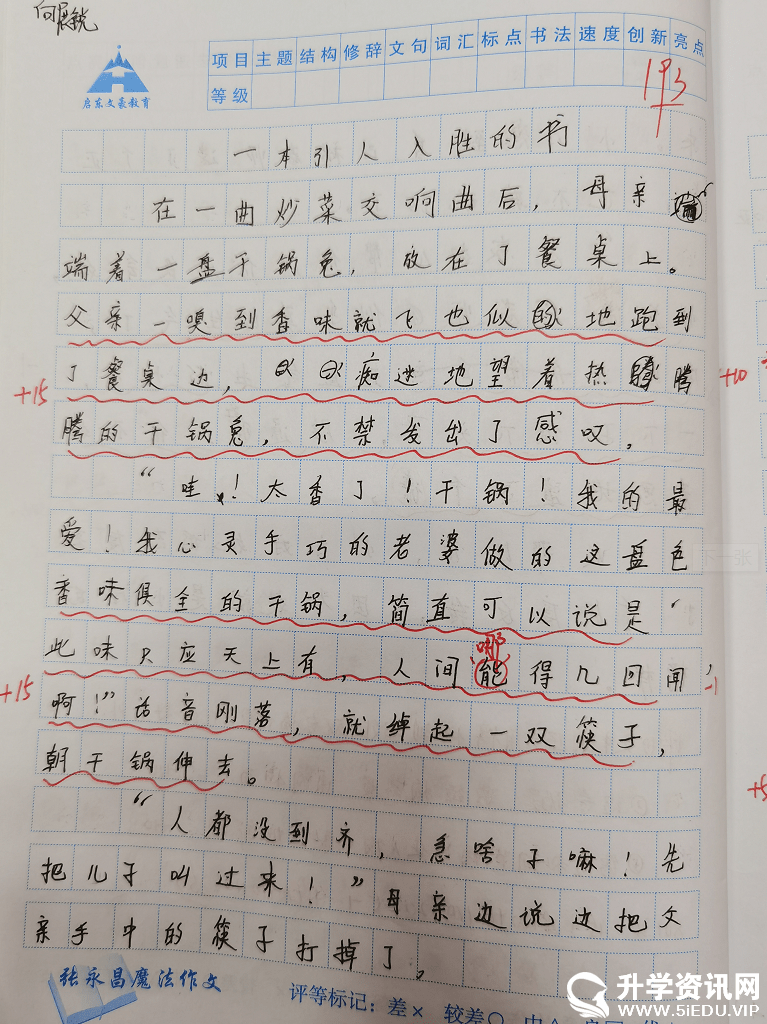 向展锐
启东文豪教育
项目 主题 结构 修辞 文句 词汇 标点 书法 速度 创新 亮点
等级
193
一本引人入胜的书
在一曲炒菜交响曲后，母亲
端着一盘干锅兔，放在了餐桌上。
父亲一嗅到香味就飞也似的地跑到
了餐桌边，痴迷地望着热腾
+15
+10
腾的干锅兔，不禁发出了感叹，
“哇！太香了！干锅！我的最
爱！我心灵手巧的老婆做的这盘色
香味俱全的干锅，简直可以说是‘
哪
此味只应天上有，人间能得几回闻’
-1
+15
啊！”话音刚落，就绰起一双筷子，
朝干锅伸去。
+5
“人都没到齐，急啥子嘛！先
把儿子叫过来！”母亲边说边把父
亲手中的筷子打掉了。
张永昌魔法作文
评等标记：差× 较差○ 中△
升学资讯网
WWW.5iEDU.VIP